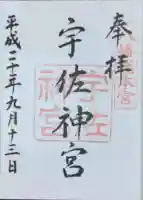 奉拝
宇佐神宮
平成二十年九月十三日
宇佐
神宮